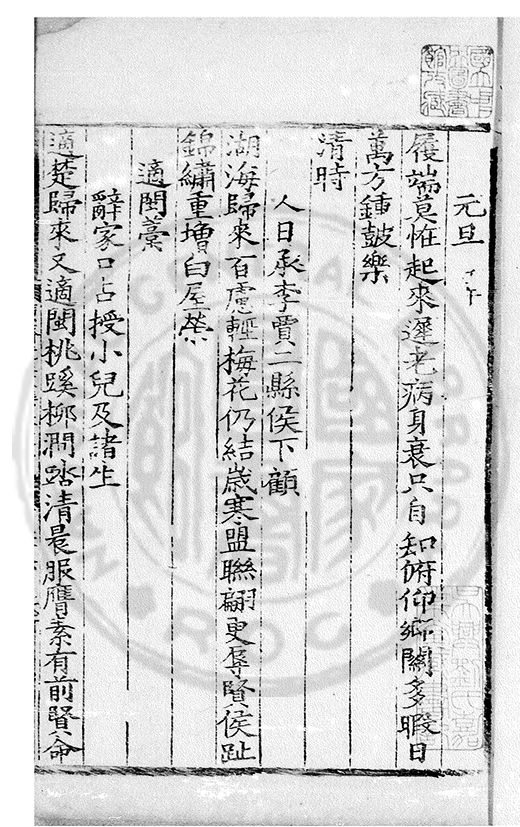 元旦
履端莫恠起來遲老病身衰只自知俯仰鄉關多暇日
萬方鍾鼓樂
清時
人日承李賈二縣侯下顧
湖海歸來百慮輕梅花仍結歲寒盟聯翩更辱賢侯趾
錦繡重增白屋榮
適閩藁
辭家口占授小兒及諸生
適楚歸來又適閩桃蹊柳澗踏清晨服膺素有前賢命